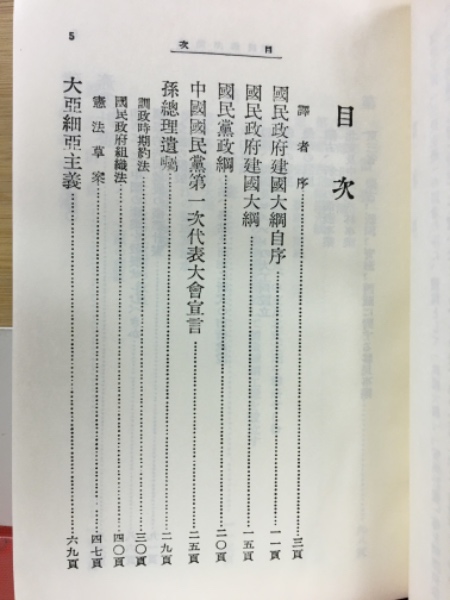 目次
5
目次
譯者序……三頁
國民政府建國大綱自序……一一頁
國民政府建國大綱……一五頁
國民黨政綱……二〇頁
中國國民黨第一次代表大會宣言……二五頁
孫總理遺囑……二九頁
訓政時期約法……三〇頁
國民政府組織法……四〇頁
憲法草案……四七頁
大亞細亞主義……六九頁